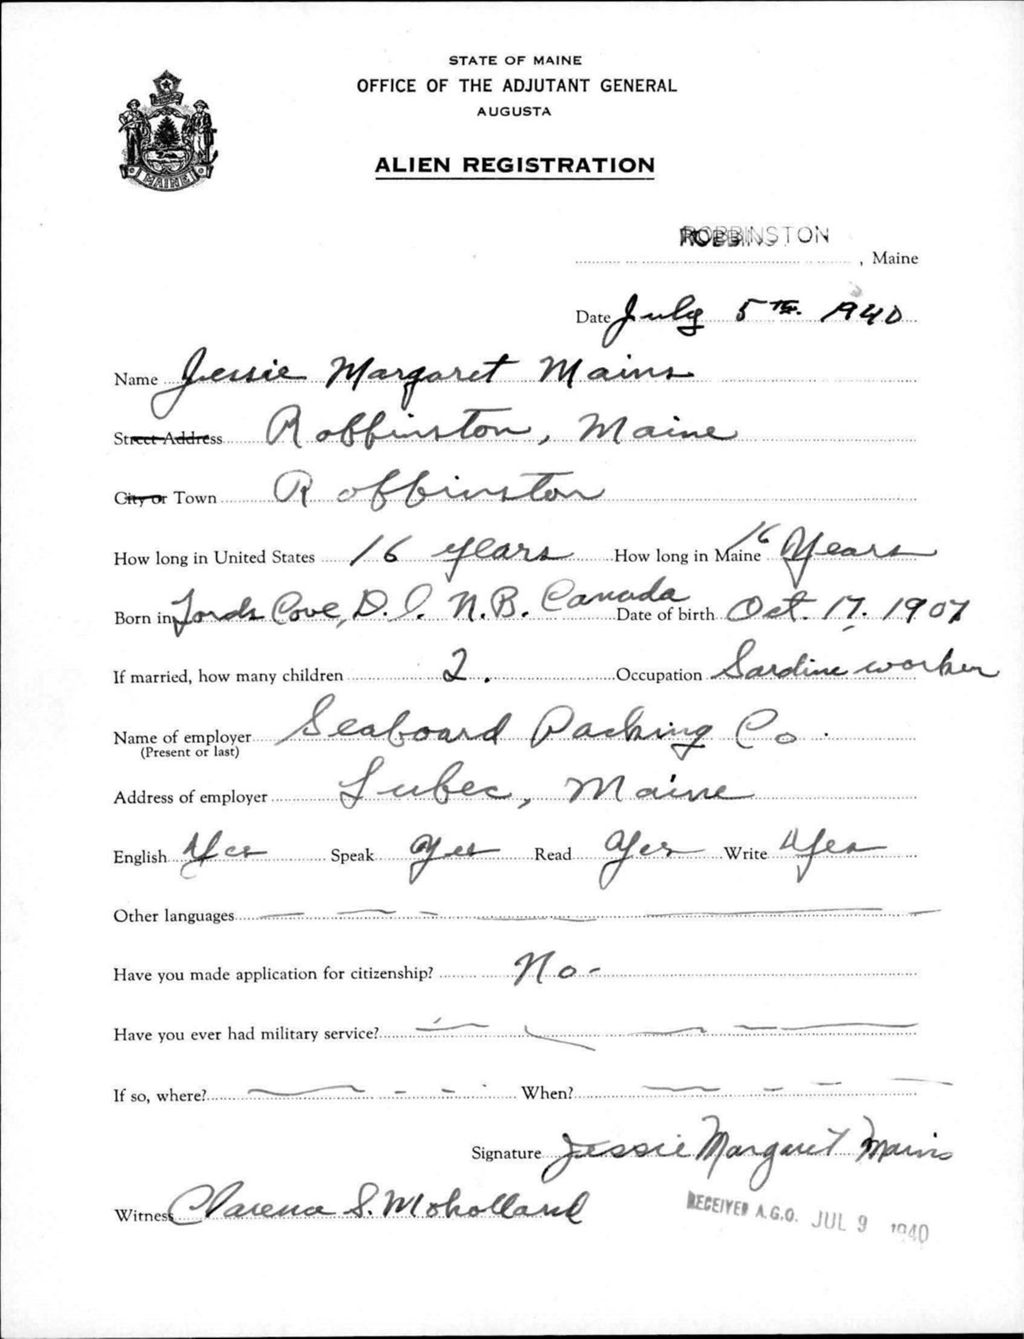 STATE OF MAINE
OFFICE OF THE ADJUTANT GENERAL
AUGUSTA
ALIEN REGISTRATION
MAINE
ROBBINSTON
, Maine
Date July 5 TH. 1940
Name Jessie Margaret Mains
Street Address Robbinston, Maine
City or Town Robbinston
How long in United States 16 years How long in Maine 16 Years
Born in Lords Cove, D. I. N.B. Canada Date of birth Oct. 17. 1907
If married, how many children 2. Occupation Sardine worker
Name of employer Seaboard Packing Co.
(Present or last)
Address of employer Lubec, Maine
English Yes Speak Yes Read Yes Write Yes
Other languages
Have you made application for citizenship? No-
Have you ever had military service?
If so, where? When?
Signature Jessie Margaret Mains
Witness Clarence S. Moholland
RECEIVED A.G.O. JUL 9 1940